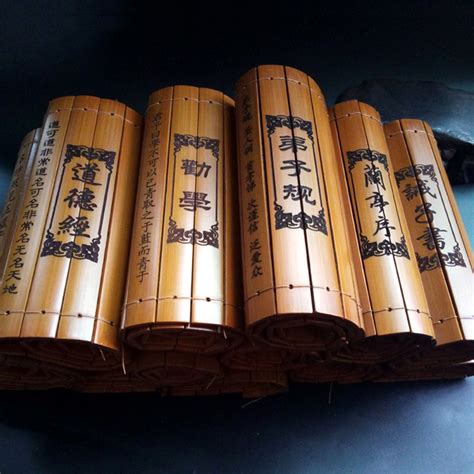 道可道非常道名可名非常名无名天地
道德經
君子曰學不可以已青取之于藍而青于
勸學
弟子规 圣人训 首孝悌 次谨信 泛爱众
弟子规
蘭亭序
誡子書